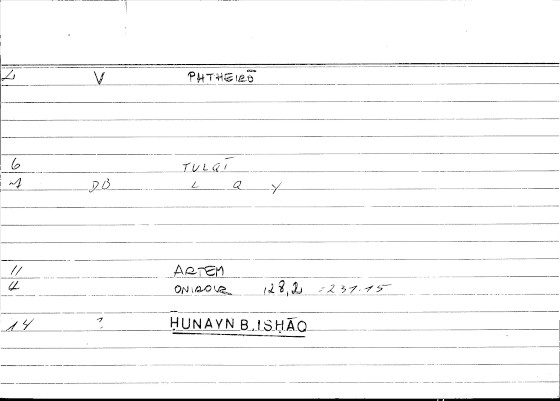 V PHTHEIRŌ
6 TULQĪ
DB L Q Y
11 ARTEM
4 ONIROCR 128,2 = 231.15
14 ? ḤUNAYN B. ISḤĀQ